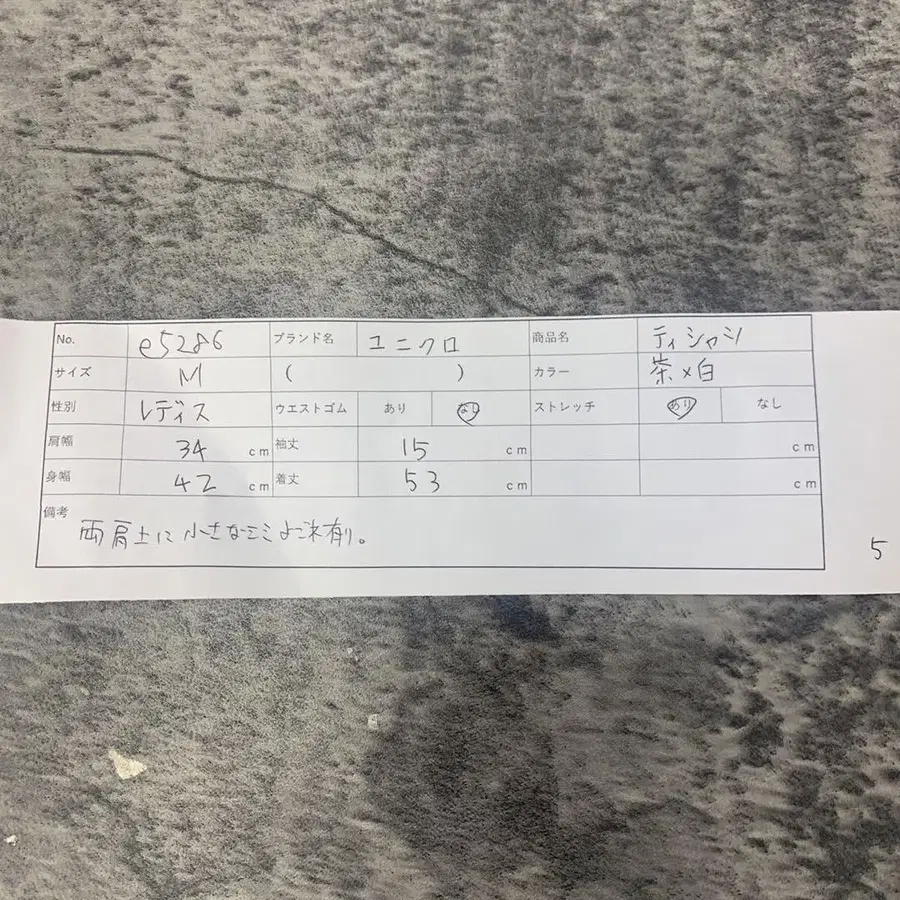 No. e5286 ブランド名 ユニクロ 商品名 ティシャツ
サイズ M ( ) カラー 茶×白
性別 レディス ウエストゴム あり なし ストレッチ あり なし
肩幅 34 cm 袖丈 15 cm cm
身幅 42 cm 着丈 53 cm cm
備考
両肩上に小さな 有り。
5